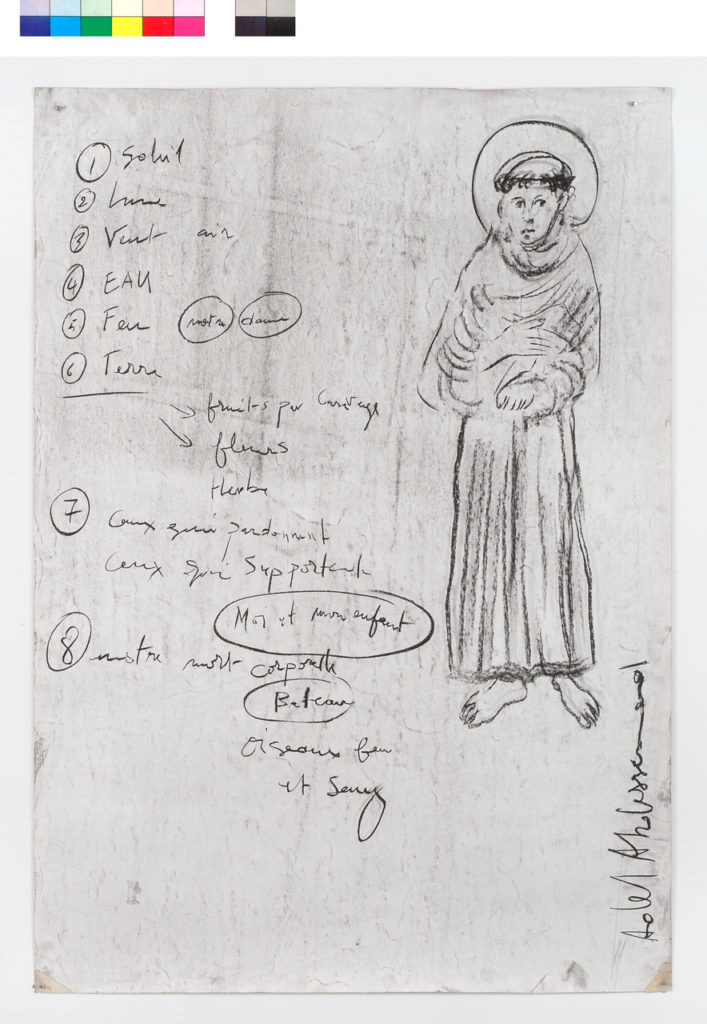 1 Soleil
2 Lune
3 Vent air
4 EAU
5 Feu notre dame
6 Terre
fruits par Caravage
fleurs
Herbe
7 Ceux qui pardonnent
Ceux qui Supportent
Moi et mon enfant
8 notre mort corporelle
Bateau
Oiseaux feu
et Sang
Adel Abdessemed